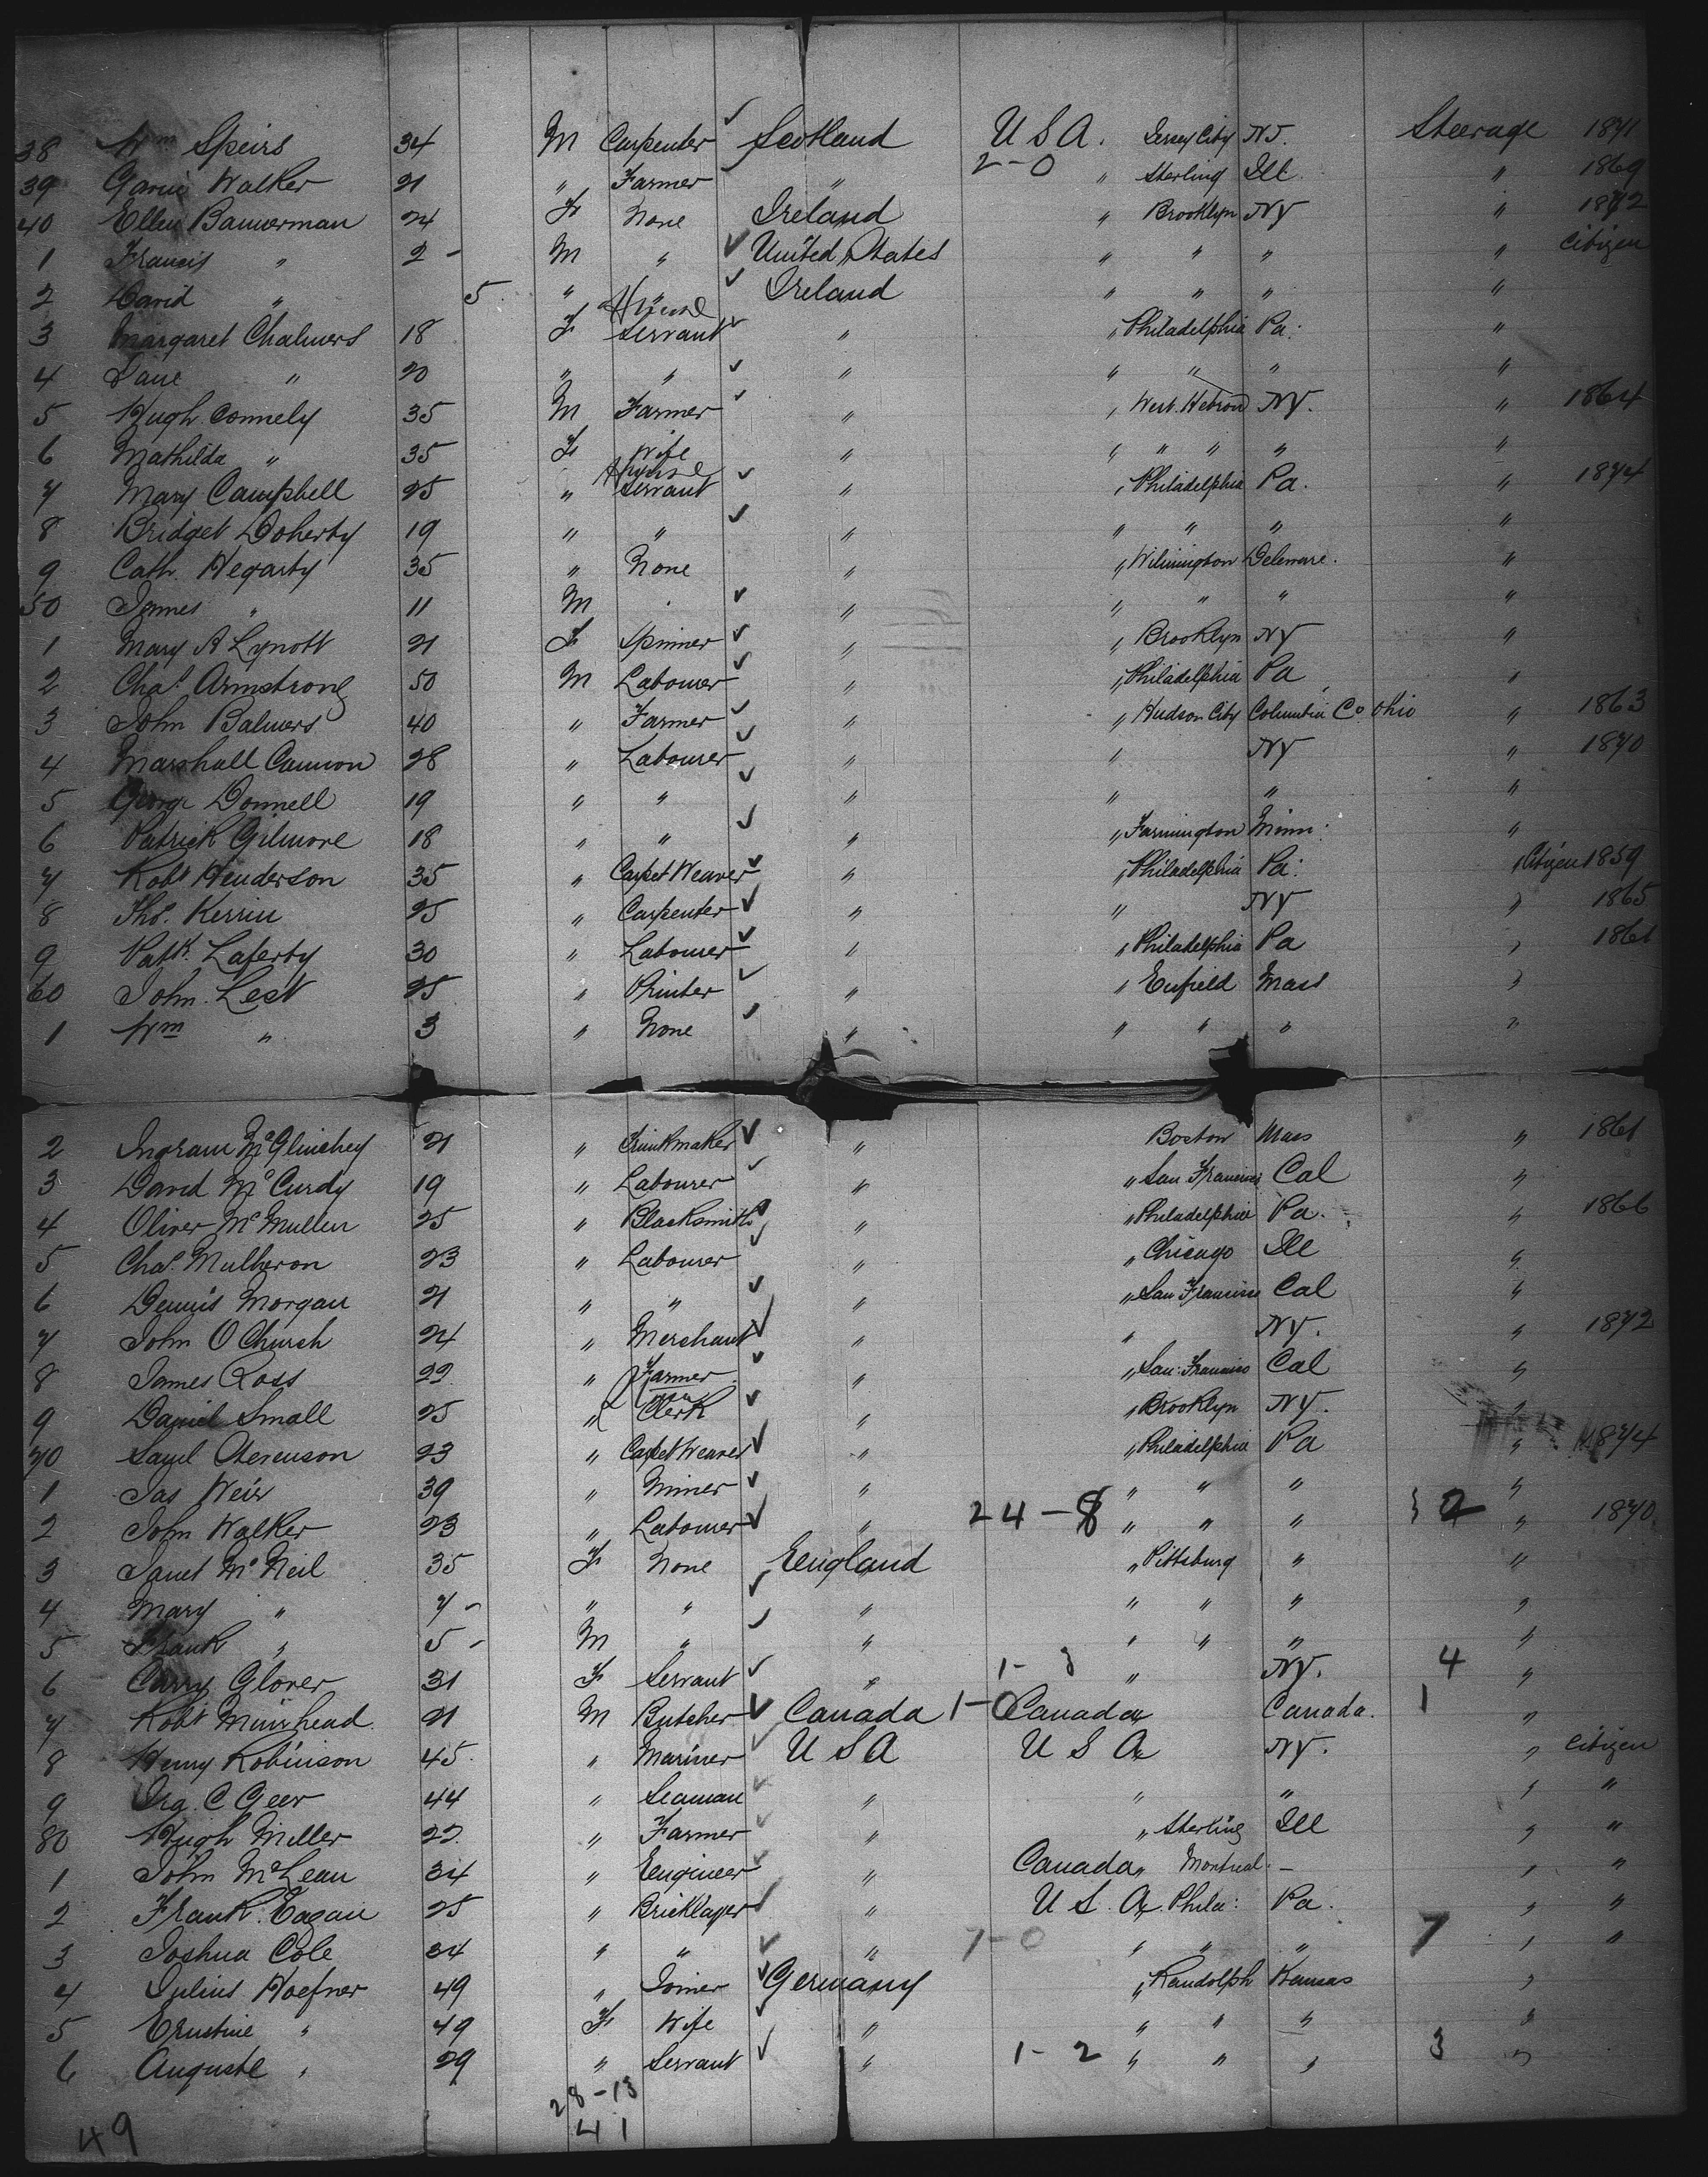 38 Wm Speirs 34 M Carpenter ✓ Scotland U S A. Jersey City NJ. Steerage 1871
2-0
39 Gavin Walker 21 " Farmer " " Sterling Ill. " 1869
40 Ellen Bannerman 24 F None Ireland " Brooklyn NY " 1872
1 Francis " 2 - M " ✓ United States " " " " Citizen
2 David " 5 " " ✓ Ireland " " " "
3 Margaret Chalmers 18 F House Servant ✓ " " Philadelphia Pa: "
4 Jane " 20 " " ✓ " " " " "
5 Hugh Connely 35 M Farmer ✓ " " West Hebron NY. " 1864
6 Mathilda " 35 F Wife " " " " " "
7 Mary Campbell 25 " House Servant ✓ " " Philadelphia Pa. " 1874
8 Bridget Doherty 19 " " ✓ " " " " "
9 Cath. Hegarty 35 " None " " Wilmington Delaware. "
50 James " 11 M " ✓ " " " " "
1 Mary A Lynott 21 F Spinner ✓ " " Brooklyn NY "
2 Chas. Armstrong 50 M Labourer ✓ " " Philadelphia Pa "
3 John Balmers 40 " Farmer ✓ " " Hudson City Columbia Co Ohio " 1863
4 Marshall Cannon 28 " Labourer ✓ " " NY " 1870
5 George Donnell 19 " " ✓ " " " "
6 Patrick Gilmore 18 " " ✓ " " Farmington Minn: "
7 Robt Henderson 35 " Carpet Weaver ✓ " " Philadelphia Pa: " Citizen 1859
8 Thos. Kerrin 25 " Carpenter ✓ " " NY " 1865
9 Patk. Laferty 30 " Labourer ✓ " " Philadelphia Pa " 1861
60 John Lest 25 " Printer ✓ " " Enfield Mass "
1 Wm " 3 " None ✓ " " " " "
2 Ingram McGlinchey 21 " Trunkmaker ✓ " Boston Mass " 1861
3 David McCurdy 19 " Labourer ✓ " " San Francisco Cal "
4 Oliver McMullen 25 " Blacksmith ✓ " " Philadelphia Pa. " 1866
5 Chas. Mulheron 23 " Labourer ✓ " " Chicago Ill "
6 Dennis Morgan 21 " " ✓ " " San Francisco Cal "
7 John O Church 24 " Merchant ✓ " " NY. " 1872
8 James Ross 22 " Farmer ✓ " " San Francisco Cal "
9 Daniel Small 25 " Clerk ✓ " " Brooklyn NY. "
70 Saml Stevenson 23 " Carpet Weaver ✓ " " Philadelphia Pa " 1874
1 Jas Weir 39 " Miner ✓ " " " " "
2 John Walker 23 " Labourer ✓ " 24-8 " " " " 1870
3 Janet McNeil 35 F None England " Pittsburg " "
4 Mary " 7 - " " ✓ " " " " "
5 Frank " 5 - M " ✓ " " " " "
6 Carry Glover 31 F Servant ✓ " 1-3 " NY. 4 "
7 Robt Muirhead 21 M Butcher ✓ Canada 1-0 Canada " Canada. 1 "
8 Henry Robinson 45 " Mariner ✓ U S A U S A " NY. " Citizen
9 C Geer 44 " Seaman ✓ " " " " "
80 Hugh Miller 22 " Farmer ✓ " " Sterling Ill " "
1 John McLean 34 " Engineer ✓ " Canada " Montreal. - " "
2 Frank Eagan 25 " Bricklayer ✓ " U S. A " Phila: Pa. " "
3 Joshua Cole 34 " " ✓ " 7-0 " " " 7 " "
4 Julius Hoefner 49 " Joiner ✓ Germany " Randolph Kansas "
5 Ernstine " 49 F Wife ✓ " " " " "
6 Auguste " 29 " Servant ✓ " 1-2 " " " 3 "
28-13
41
49